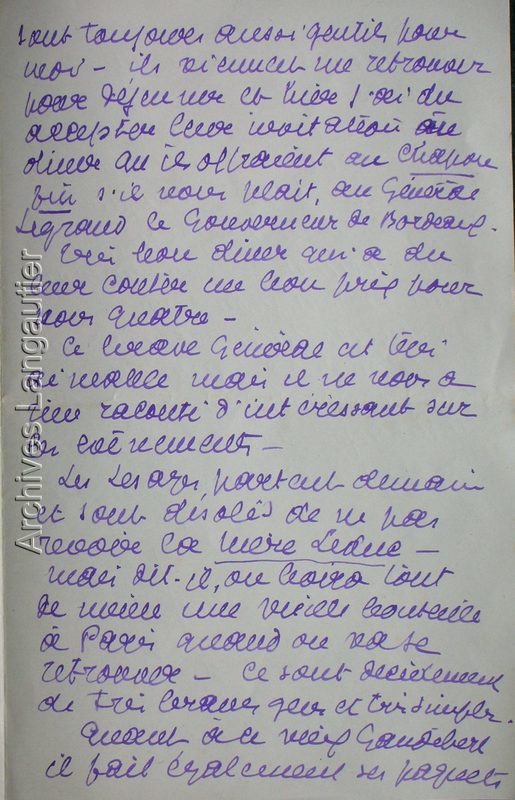 sont toujours aussi gentils pour
moi - ils viennent me retrouver
pour déjeuner et hier j'ai du
accepter leur invitation au
diner qu'ils offraient au Chapon
fin s'il vous plait, au Général
Legrand le Gouverneur de Bordeaux.
Très bon diner qui a du
leur couter un bon prix pour
nous quatre -
Ce brave Général est très
aimable mais il ne nous a
rien raconté d'intéressant sur
les evènements -
Les Lesage partent demain
et sont désolés de ne pas
revoir la Mère Leduc -
mais dit-il, on boira tout
de même une vieille bouteille
à Paris quand on va se
retrouver - Ce sont décidement
de très braves gens et très simples.
Quant à ce vieux
il fait également ses paquets
Archives Langautier